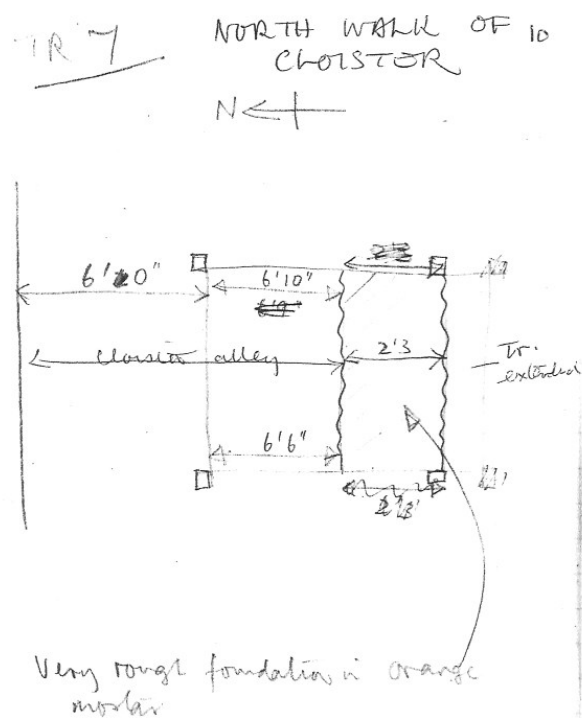 TR 7
NORTH WALK OF 10
CLOISTER
N
6'0"
6'10"
6'9"
cloister alley
2'3
Tr.
extended
6'6"
Very rough foundation in orange
mortar